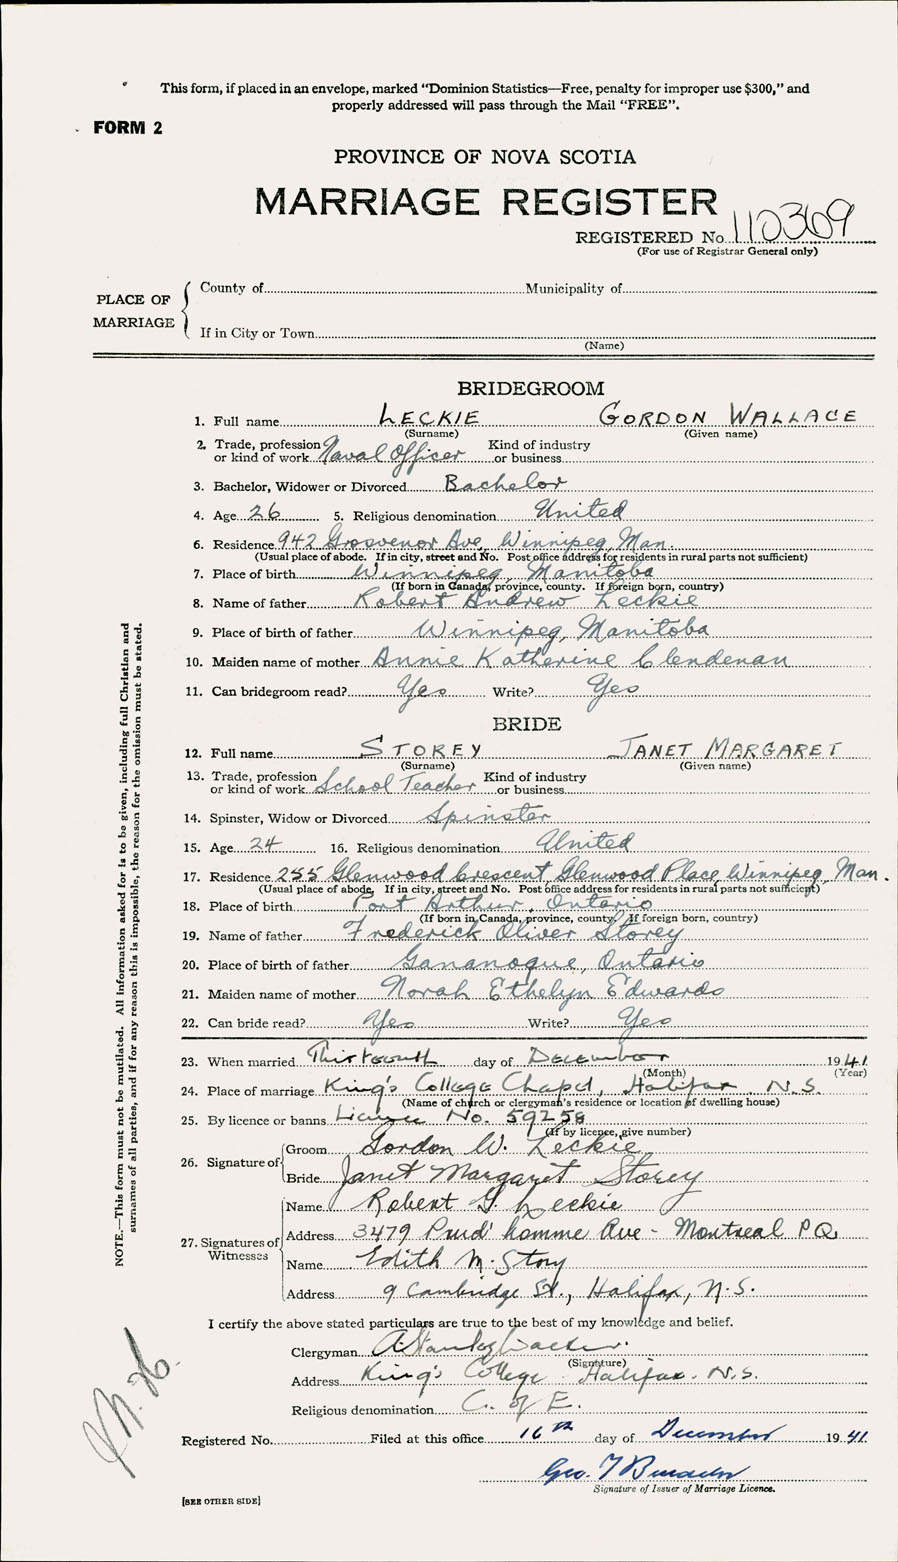 This form, if placed in an envelope, marked "Dominion Statistics—Free, penalty for improper use $300," and
properly addressed will pass through the Mail "FREE".
FORM 2
PROVINCE OF NOVA SCOTIA
MARRIAGE REGISTER
REGISTERED No. 110369
(For use of Registrar General only)
PLACE OF MARRIAGE
County of Municipality of
If in City or Town
(Name)
BRIDEGROOM
1. Full name LECKIE GORDON WALLACE
(Surname) (Given name)
2. Trade, profession or kind of work Naval Officer Kind of industry or business
3. Bachelor, Widower or Divorced Bachelor
4. Age 26 5. Religious denomination United
6. Residence 942 Grosvenor Ave, Winnipeg, Man.
(Usual place of abode. If in city, street and No. Post office address for residents in rural parts not sufficient)
7. Place of birth Winnipeg, Manitoba
(If born in Canada, province, county. If foreign born, country)
8. Name of father Robert Andrew Leckie
9. Place of birth of father Winnipeg, Manitoba
10. Maiden name of mother Annie Katherine Clendenan
11. Can bridegroom read? Yes Write? Yes
BRIDE
12. Full name STOREY JANET MARGARET
(Surname) (Given name)
13. Trade, profession or kind of work School Teacher Kind of industry or business
14. Spinster, Widow or Divorced Spinster
15. Age 24 16. Religious denomination United
17. Residence 255 Glenwood Crescent, Glenwood Place, Winnipeg, Man.
(Usual place of abode, If in city, street and No. Post office address for residents in rural parts not sufficient)
18. Place of birth Port Arthur, Ontario
(If born in Canada, province, county. If foreign born, country)
19. Name of father Frederick Oliver Storey
20. Place of birth of father Gananoque, Ontario
21. Maiden name of mother Norah Ethelyn Edwards
22. Can bride read? Yes Write? Yes
23. When married Thirteenth day of December 1941
(Month) (Year)
24. Place of marriage King's College Chapel, Halifax N.S.
(Name of church or clergyman's residence or location of dwelling house)
25. By licence or banns Licence No. 59258
(If by licence, give number)
26. Signature of
Groom Gordon W. Leckie
Bride Janet Margaret Storey
27. Signatures of Witnesses
Name Robert G. Leckie
Address 3479 Prud'homme Ave - Montreal P.Q.
Name Edith M. Story
Address 9 Cambridge St., Halifax, N.S.
I certify the above stated particulars are true to the best of my knowledge and belief.
Clergyman A Stanley Walker.
(Signature)
Address King's College Halifax. N.S.
Religious denomination C. of E.
Registered No. Filed at this office 16th day of December 1941
Geo. T
Signature of Issuer of Marriage Licence.
[SEE OTHER SIDE]
NOTE.—This form must not be mutilated. All information asked for is to be given, including full Christian and
surnames of all parties, and if for any reason this is impossible, the reason for the omission must be stated.